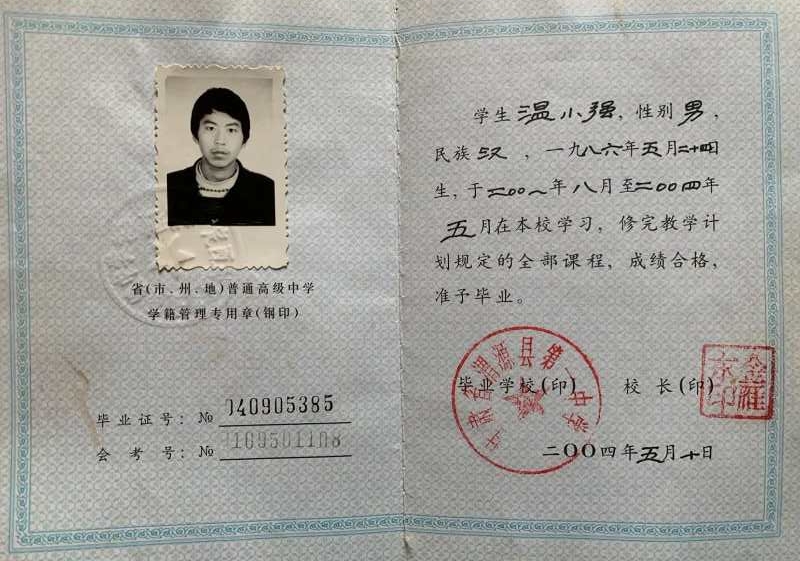 省(市、州、地)普通高级中学
学籍管理专用章(钢印)
毕业证号: № 040905385
会考号: №
学生温小强, 性别男,
民族汉, 一九八六年五月二十四
生, 于二〇〇一年八月至二〇〇四年
五月在本校学习, 修完教学计
划规定的全部课程, 成绩合格,
准予毕业。
甘肃省渭源县第一中学
毕业学校(印) 校长(印)
二〇〇四年五月十日